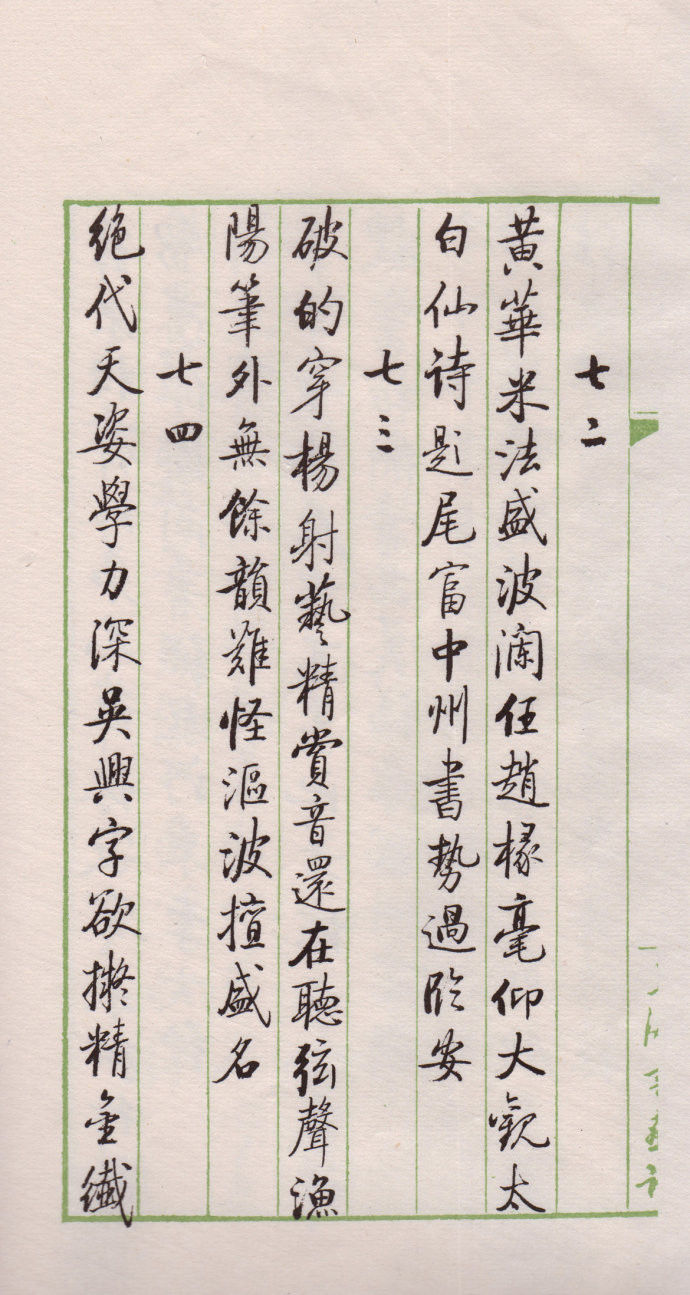 七二
黄華米法盛波瀾任趙椽毫仰大觀太
白仙詩題尾富中州書勢過臨安
七三
破的穿楊射藝精賞音還在聽弦聲漁
陽筆外無餘韻難怪漚波擅盛名
七四
絕代天姿學力深吳興字欲擬精金纖